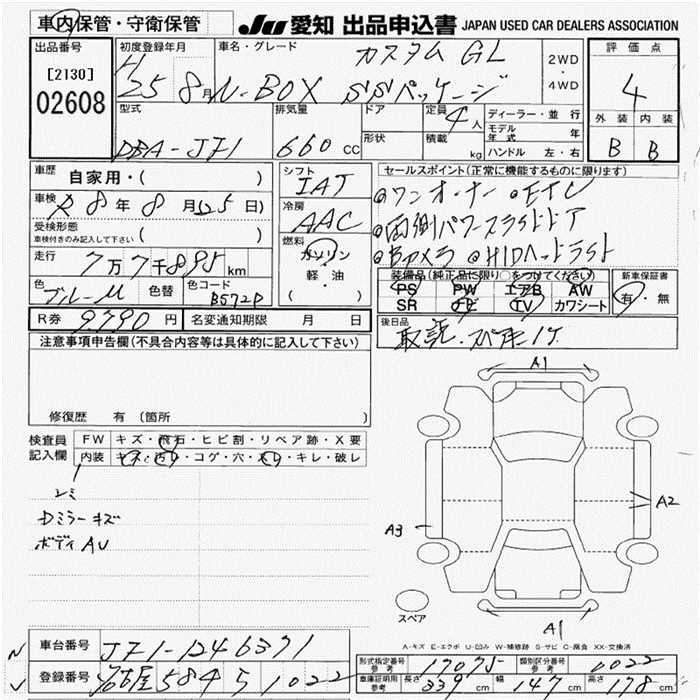 車内保管・守衛保管
JU 愛知 出品申込書 JAPAN USED CAR DEALERS ASSOCIATION
出品番号
[2130]
02608
初度登録年月
H 25 8月
車名・グレード
カスタム GL
N-BOX SSパッケージ
2WD
・
4WD
評価点
4
外装 内装
B B
型式
DBA-JF1
排気量
660 cc
ドア
形状
定員 4人
積載 kg
ディーラー・並行
モデル年式 年
ハンドル 左・右
車歴
自家用・( )
車検
R 8年 8月(25日)
受検形態
車検付きのみ記入して下さい ( )
走行
7万7千895 km
色
ブルーM
色替
色コード
B572P
シフト
IAT
冷房
AAC
燃料
ガソリン
軽・油
( )
セールスポイント(正常に機能するものに限ります)
◎ワンオーナー ◎ETC
◎両側パワースライドドア
◎Bカメラ ◎HIDヘッドライト
装備品(純正品に限り○をつけてください)
PS PW エアB AW
SR ナビ TV カワシート
新車保証書
有・無
R券 9,790円
名変通知期限 月 日
後日品
取説・スペアキー1ケ
注意事項申告欄(不具合内容等は具体的に記入して下さい)
修復歴 有 (箇所
検査員記入欄
FW キズ・飛石・ヒビ割・リペア跡・X要
内装 キズ・汚レ・コゲ・穴・スレ・キレ・破レ
シミ
Dミラーキズ
ボディAU
A1
A2
A3
A1
スペア
A-キズ E-エクボ U-凹み W-補修跡 S-サビ C-腐食 XX-交換済
車台番号 JF1-1246371
登録番号 名古屋 584 ち 1022
形式指定番号 参考 17075
類別区分番号 参考 1022
車庫証明用 参考 長さ 339 cm 幅 147 cm 高さ 178 cm